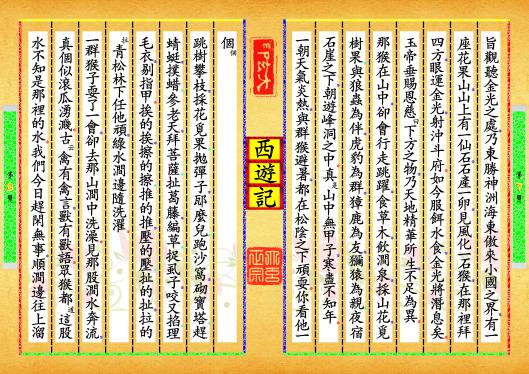 旨觀聽金光之處乃東勝神洲海東傲來小國之界有一
座花果山山上有一仙石石產一卵見風化一石猴在那裡拜
四方眼運金光射沖斗府如今服餌水食金光將潛息矣
玉帝垂賜恩慈曰下方之物乃天地精華所生不足為異
那猴在山中卻會行走跳躍食草木飲澗泉採山花覓
樹果與狼蟲為伴虎豹為群獐鹿為友獼猿為親夜宿
石崖之下朝遊峰洞之中真是山中無甲子寒盡不知年
一朝天氣炎熱與群猴避暑都在松陰之下頑耍你看他一
西遊記
個個
跳樹攀枝採花覓果拋彈子邷麼兒跑沙窩砌寶塔趕
蜻蜓撲蜡參老天拜菩薩扯葛藤編草捉虱子咬又掐理
毛衣剔指甲挨的挨擦的擦推的推壓的壓扯的扯拉的
拉青松林下任他頑綠水澗邊隨洗濯
一群猴子耍了一會卻去那山澗中洗澡見那股澗水奔流
真個似滾瓜湧濺古云禽有禽言獸有獸語眾猴都道這股
水不知是那裡的水我們今日趕閑無事順澗邊往上溜